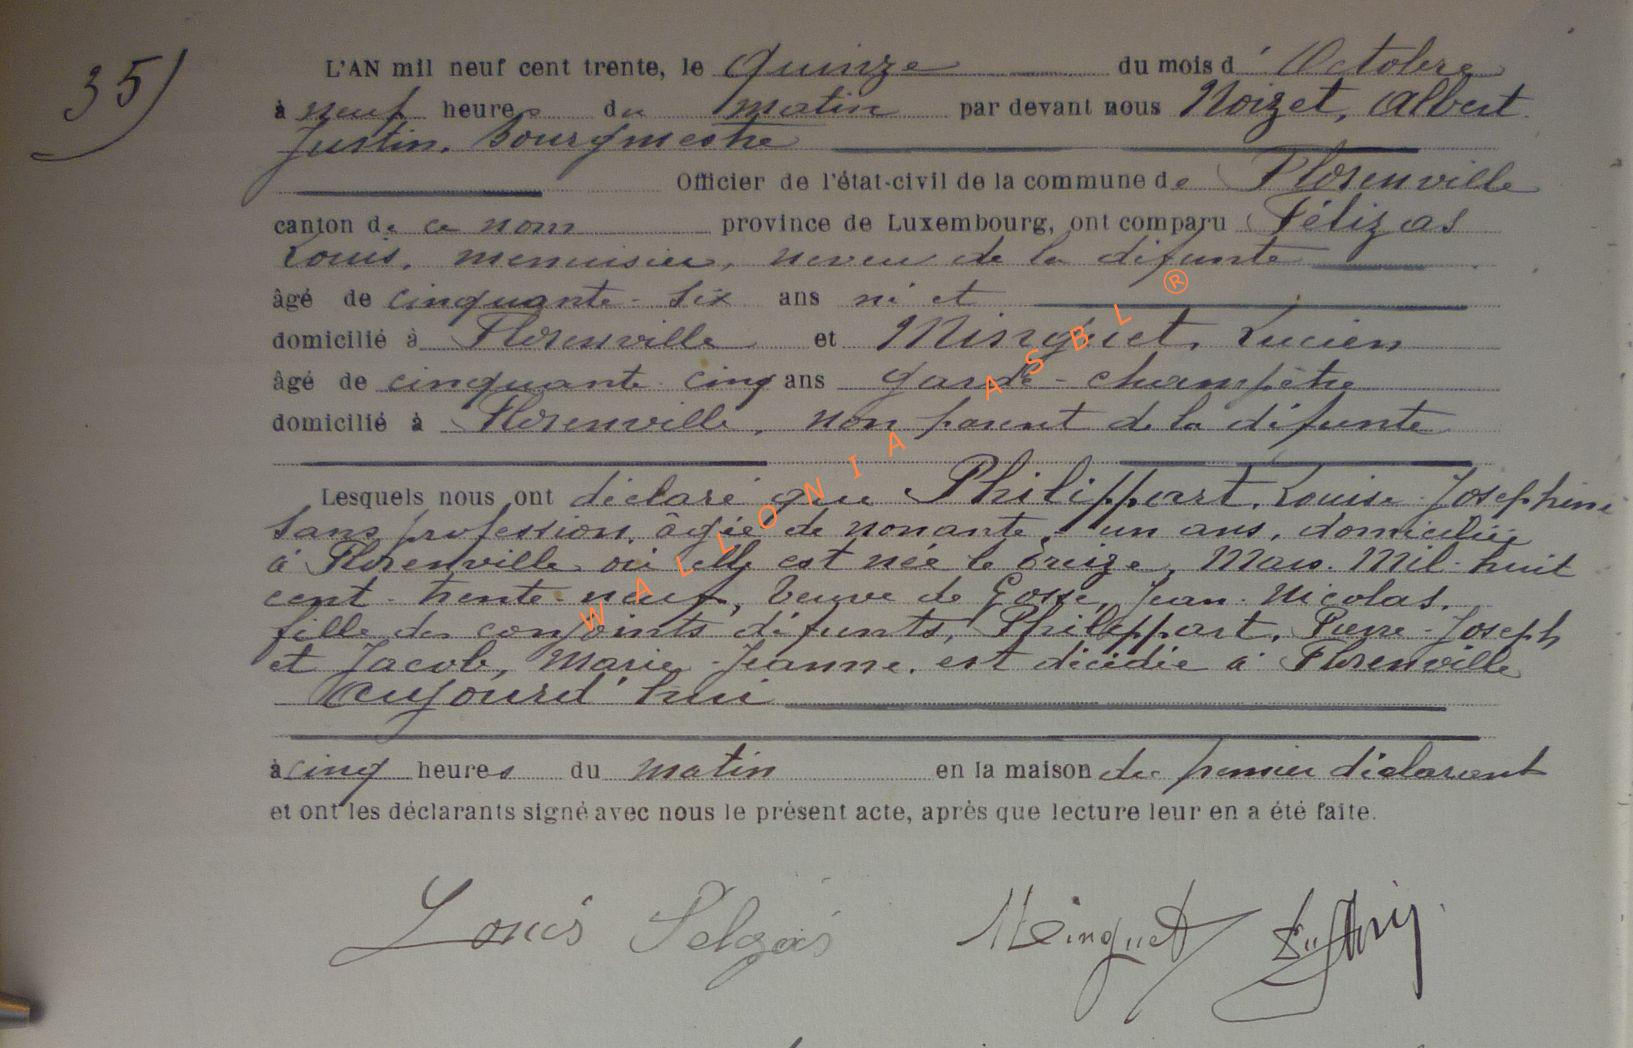 35)
L'AN mil neuf cent trente, le Quinze du mois d' Octobre
à neuf heures du matin par devant nous Noizet, Albert
Justin, Bourgmestre
Officier de l'état-civil de la commune de Florenville
canton de ce nom province de Luxembourg, ont comparu Félizas
Louis, menuisier, neveu de la défunte
âgé de cinquante-six ans né et
domicilié à Florenville et Minguet, Lucien
âgé de cinquante cinq ans garde-champêtre
domicilié à Florenville, non parent de la défunte
Lesquels nous ont déclaré que Philippart, Louise-Joséphine
sans profession, âgée de nonante-un ans, domiciliée
à Florenville où elle est née le treize, Mars Mil-huit
cent-trente-neuf, Veuve de Gosse, Jean-Nicolas,
fille des conjoints défunts, Philippart, Pierre-Joseph
et Jacob, Marie-Jeanne, est décédée à Florenville
aujourd'hui
à cinq heures du matin en la maison du premier déclarant
et ont les déclarants signé avec nous le présent acte, après que lecture leur en a été faite.
Louis Minguet
WALLONIA ASBL ®